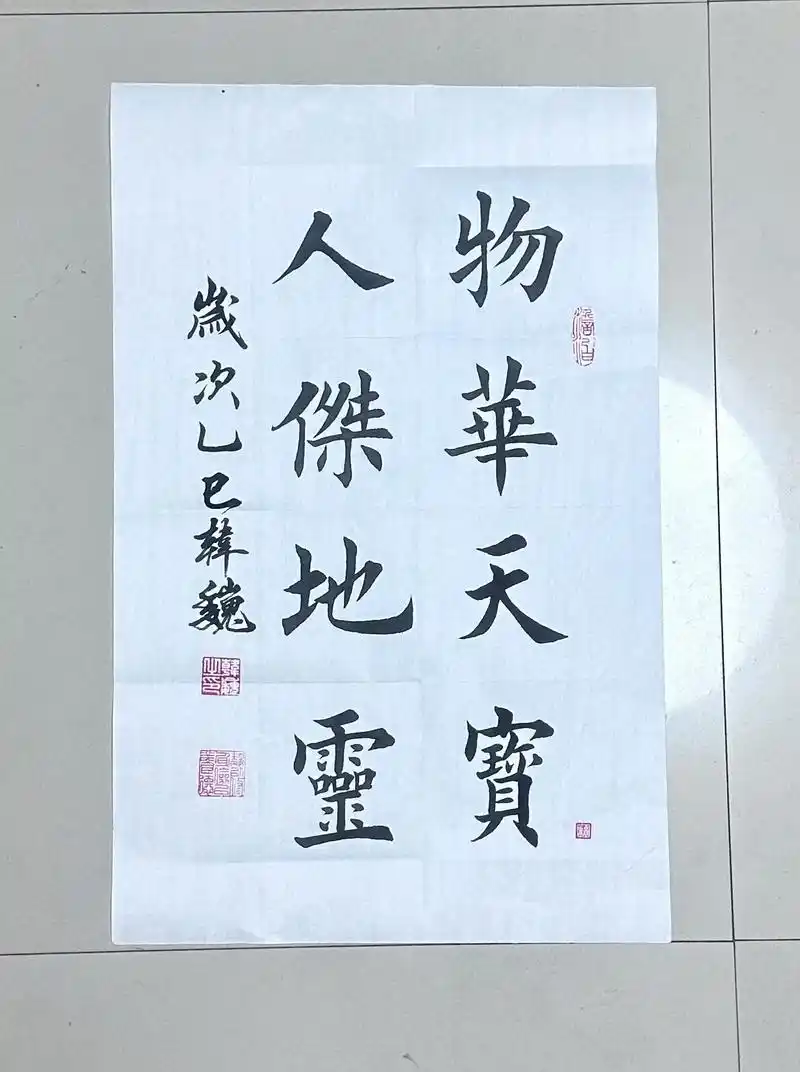 物華天寶
人傑地靈
歲次乙巳韓巍